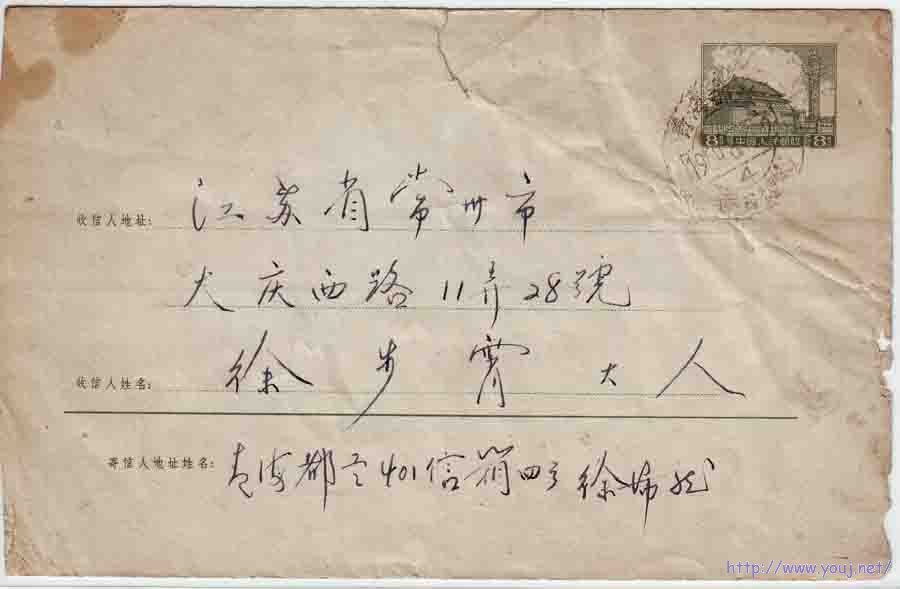 8 中国人民邮政 8
收信人地址: 江苏省常州市
大庆西路11弄28號
收信人姓名: 徐步霄大人
寄信人地址姓名: 青海都兰401信箱四分 徐
http://www.youj.net/